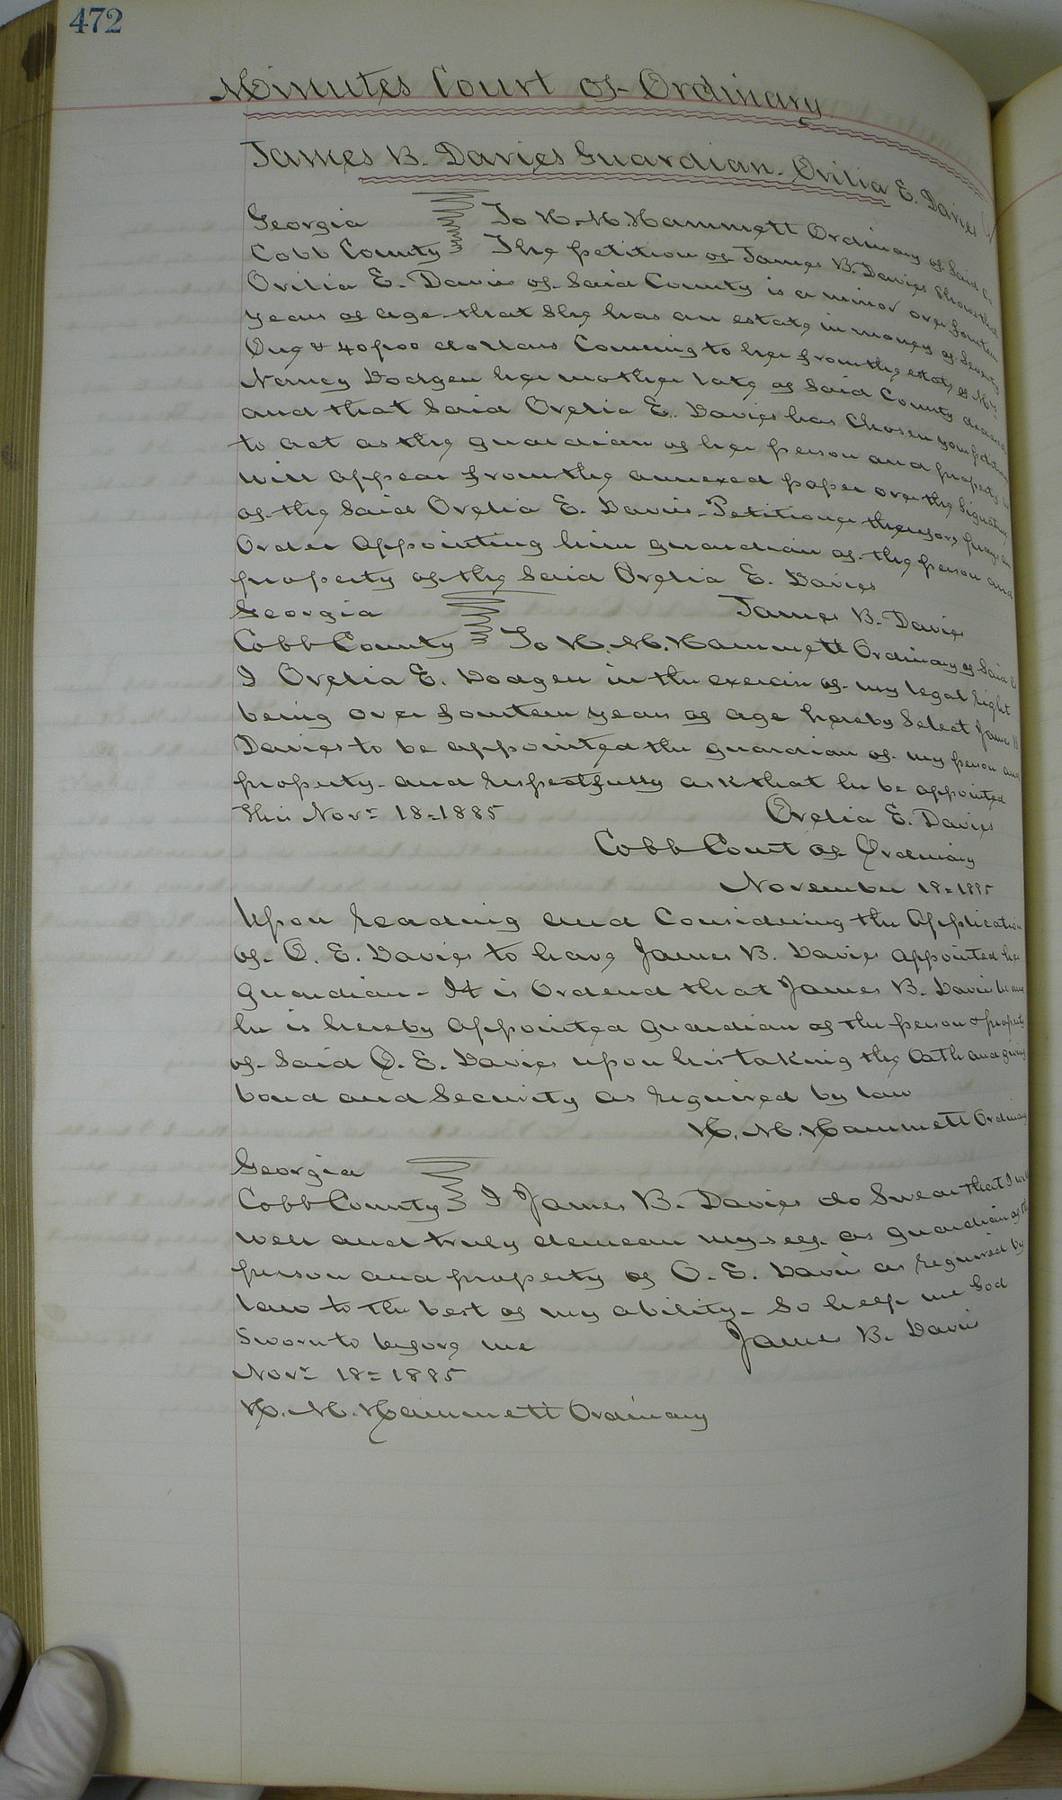 472
Minutes Court of Ordinary
James B. Davies Guardian. Ovilia E. Davies
Georgia To H. M. Hammett Ordinary of Said Co
Cobb County The petition of James B. Davies Shows that
Ovilia E. Davies of Said County is a minor over fourteen
years of age that She has an estate in money of Seventy
One & 40/100 dollars Coming to her from the estate of Mrs
Nancy Dodgen her mother late of Said County deceased
and that Said Ovelia E. Davies has Chosen your petitioner
to act as the guardian of her person and property as
will appear from the annexed paper over the Signature
of the Said Ovelia E. Davies. Petitioner therefore prays an
Order Appointing him guardian of the person and
property of the Said Ovelia E. Davies
Georgia James B. Davies
Cobb County To H. M. Hammett Ordinary of Said Co
I Ovelia E. Dodgen in the exercise of my legal right
being over fourteen years of age hereby Select James B
Davies to be appointed the guardian of my person and
property and respectfully ask that he be appointed
This Novr 18=1885 Ovelia E. Davies
Cobb Court of Ordinary
November 18=1885
Upon reading and Considering the Application
of O. E. Davies to have James B. Davies appointed her
guardian - It is Ordered that James B. Davies be and
he is hereby Appointed guardian of the person & property
of Said O. E. Davies upon his taking the Oath and giving
bond and Security as required by law
H. M. Hammett Ordinary
Georgia
Cobb County I James B. Davies do Swear that I will
well and truly demean myself as guardian of the
person and property of O. E. Davies as required by
law to the best of my ability - So help me God
Sworn to before me James B. Davies
Novr 18=1885
H. M. Hammett Ordinary